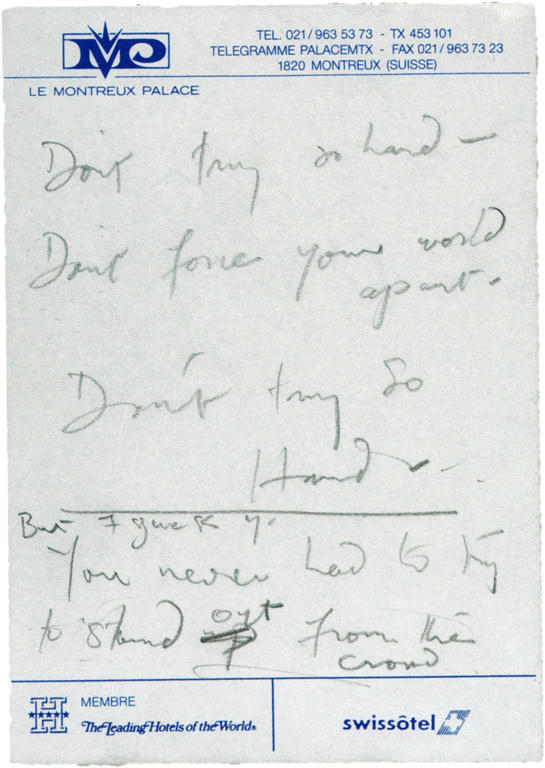 MP
TEL. 021/963 53 73 - TX 453 101
TELEGRAMME PALACEMTX - FAX 021/963 73 23
1820 MONTREUX (SUISSE)
LE MONTREUX PALACE
Don't try so hard —
Don't force your world
apart.
Don't try So
Hard
But I guess y.
You never had to try
to stand out from the
crowd
H
MEMBRE
The Leading Hotels of the World®
swissôtel